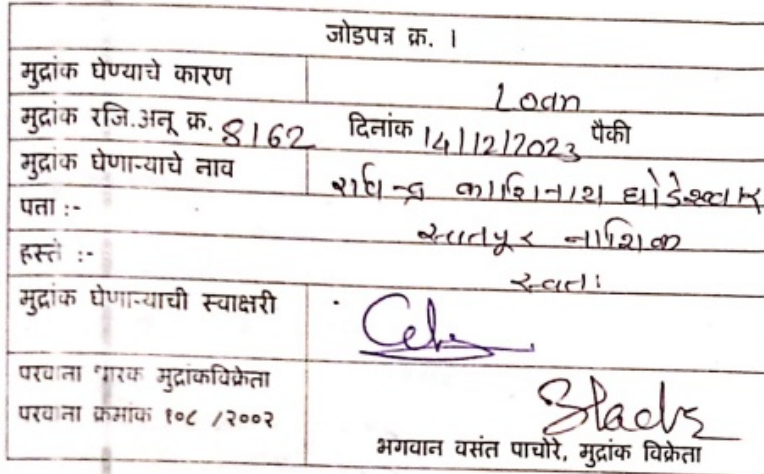 जोडपत्र क्र. 1
मुद्रांक घेण्याचे कारण Loan
मुद्रांक रजि.अनू क्र. 8162 दिनांक 14/12/2023 पैकी
मुद्रांक घेणाऱ्याचे नाव काशिनाथ घोडेस्वार
पत्ता :- सातपूर नाशिक
हस्ते :- स्वतः
मुद्रांक घेणाऱ्याची स्वाक्षरी
परवाना धारक मुद्रांकविक्रेता
परवाना क्रमांक १०८ /२००२
भगवान वसंत पाचोरे, मुद्रांक विक्रेता